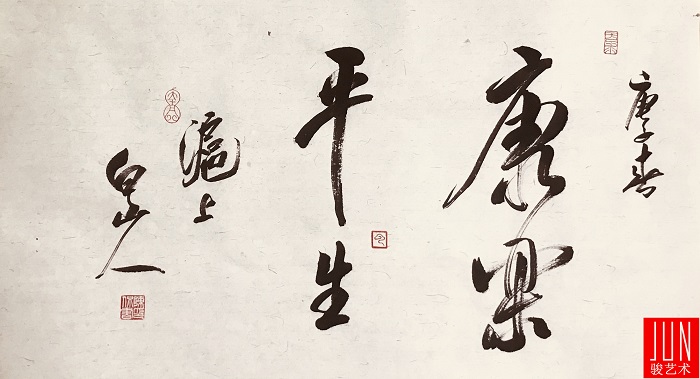 庚子春
康樂
平生
滬上
白山人
JUN
骏艺术